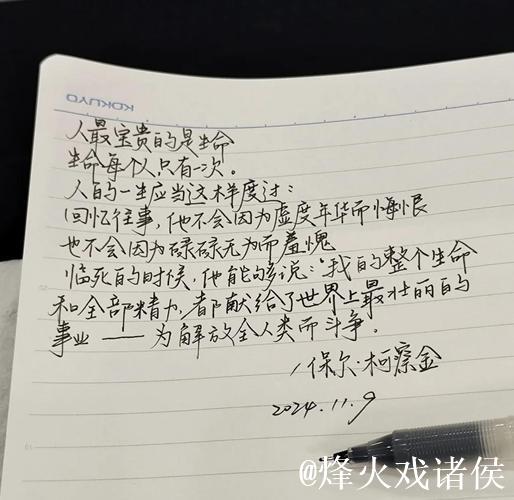 KOKUYO
人最宝贵的是生命
生命每个人只有一次。
人的一生应当这样度过：
回忆往事，他不会因为虚度年华而悔恨
也不会因为碌碌无为而羞愧
临死的时候，他能够说：“我的整个生命
和全部精力，都献给了世界上最壮丽的
事业——为解放全人类而斗争。
保尔·柯察金
2024.11.9
@烽火戏诸侯